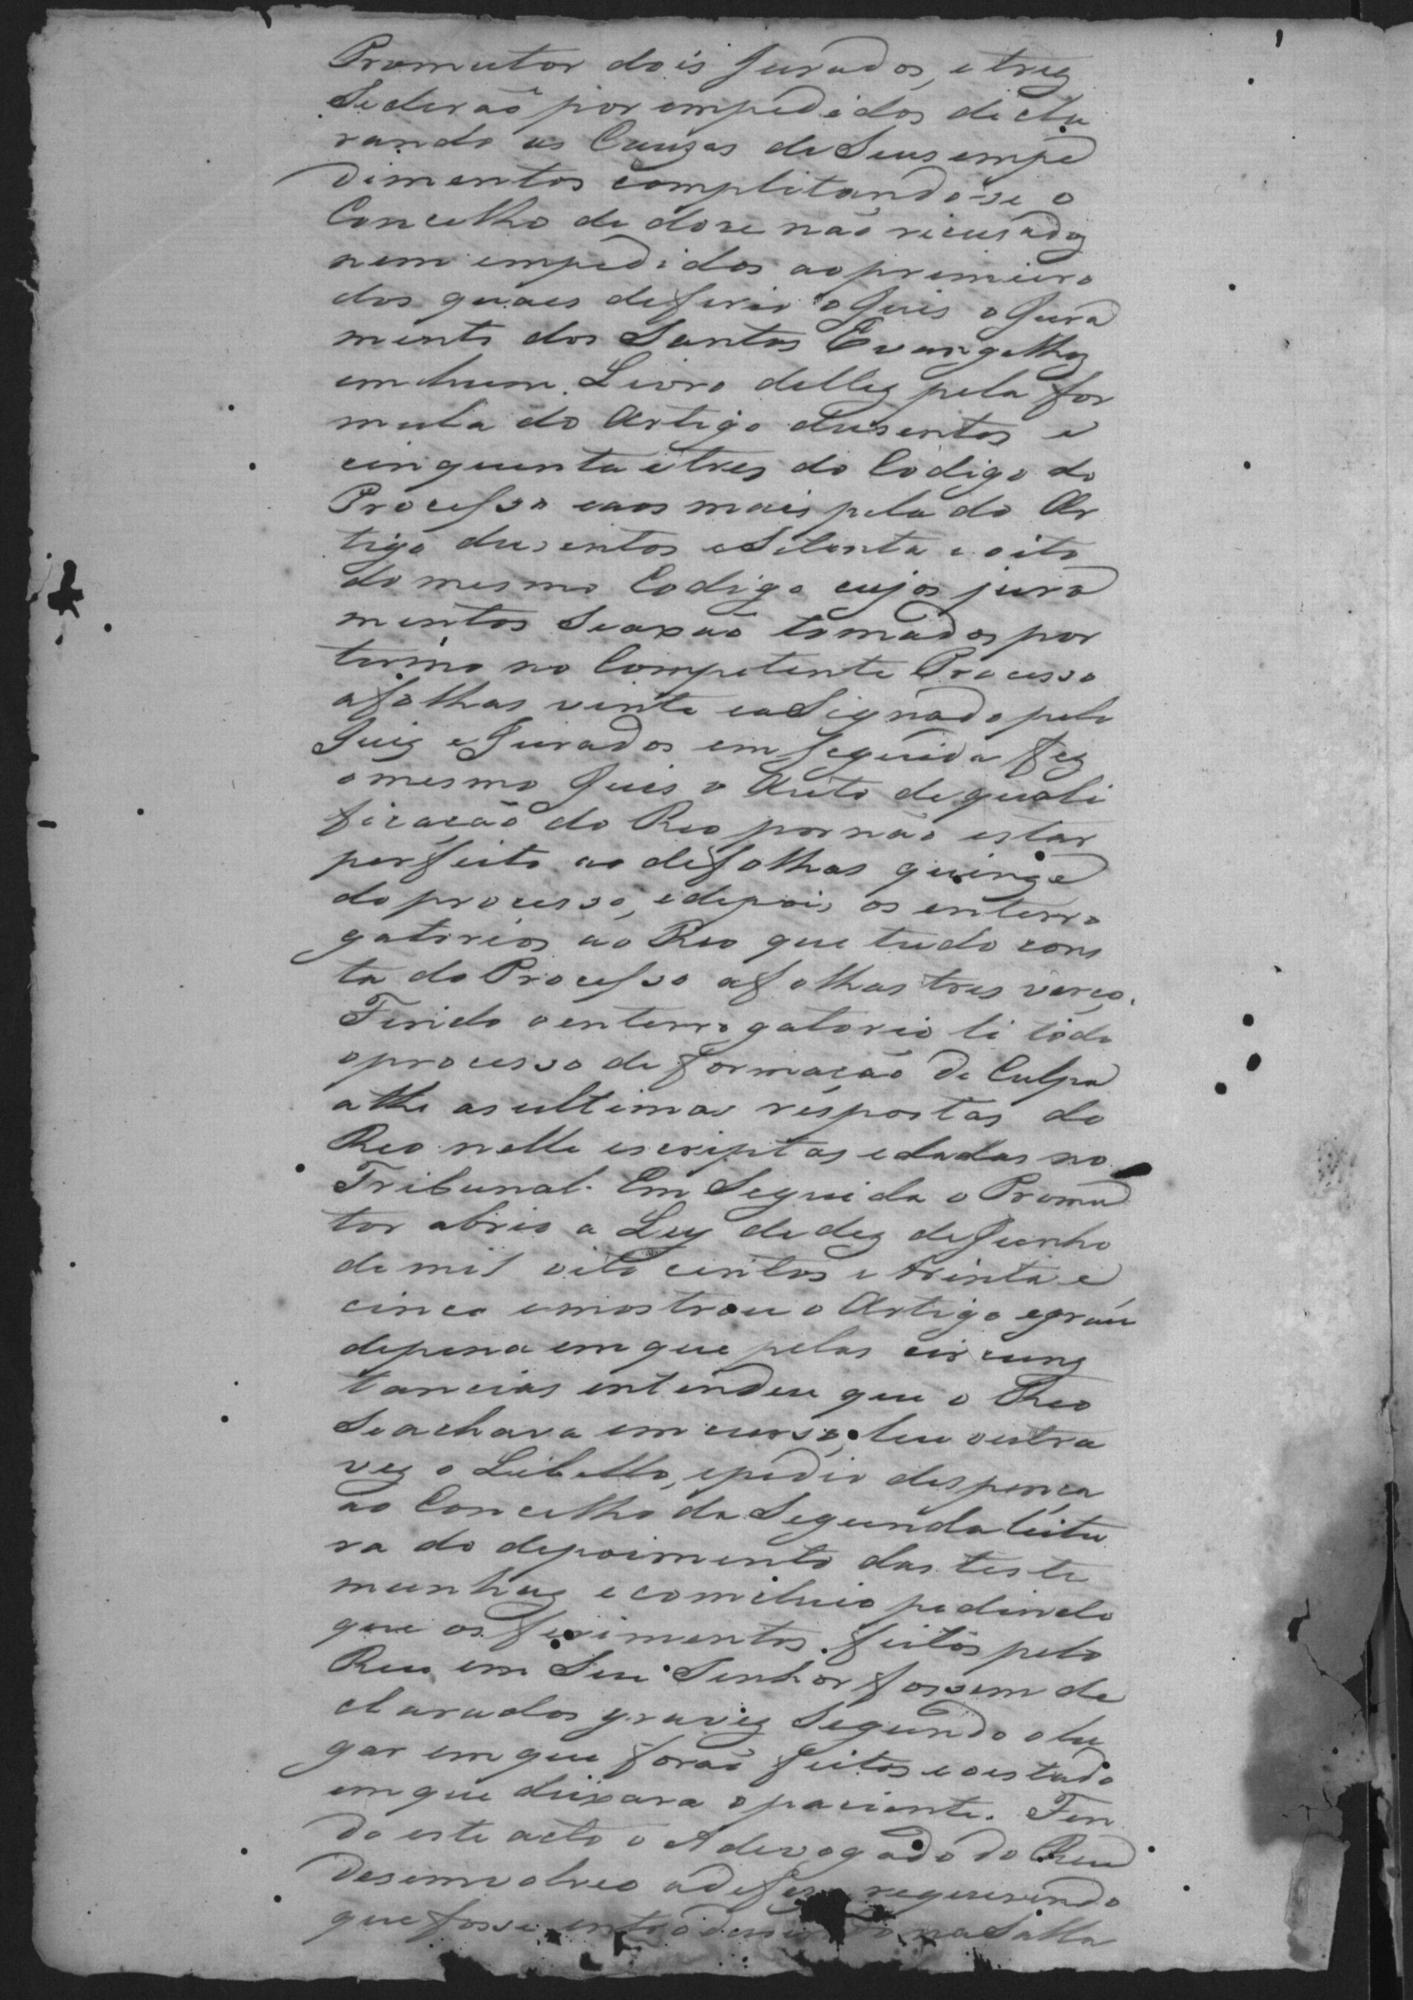 Promutor dois Jurados, e trez
Sederão por empedidos decla
rando as Cauzas de Seus empe
dimentos complitando-se o
Concelho de doze não recusados
nem empedidos ao primeiro
dos quaes deferio o Juis o Jura
mento dos Santos Evangelhos
em hum Livro delles pela for
mula do Artigo dusentos e
cinquenta e tres do Codigo do
Processo e aos mais pela do Ar
tigo dusentos e Setenta e oito
do mesmo Codigo cujos jura
mentos Seaxão tomados por
termo no Competente Processo
afolhas vinte e aSignado pelo
Juiz e Jurados em seguida fez
o mesmo Juis o Auto de quali
ficação do Reo por não estar
perfeito ao defolhas quinze
do processo, e depois os enterro
gatorios ao Reo que tudo cons
ta do Processo afolhas tres verço.
Findo o enterrogatorio li todo
o processo de formação de Culpa
athe as ultimas respostas do
Reo nelle escriptas e dadas no
Tribunal. Em Seguida o Promu
tor abrio a Ley de dez de Junho
de mil oito centos e trinta e
cinco e mostrou o Artigo e gráu
depena em que pelas circuns
tancias entendeu que o Reo
Se achava em curso, leu outra
vez o Libello, e pedio despença
ao Concelho da Segunda leitu
ra do depoimento das teste
munhas e comcluio pedindo
que os ferimentos feitos pelo
Reu em Seu Senhor fossem de
clarados gravez Segundo o lu
gar em que forão feitos e o estado
em que deixara o paciente. Fin
do este acto o Adevogado do Reu
desemvolveo a defesa requerendo
que fosse na Salla